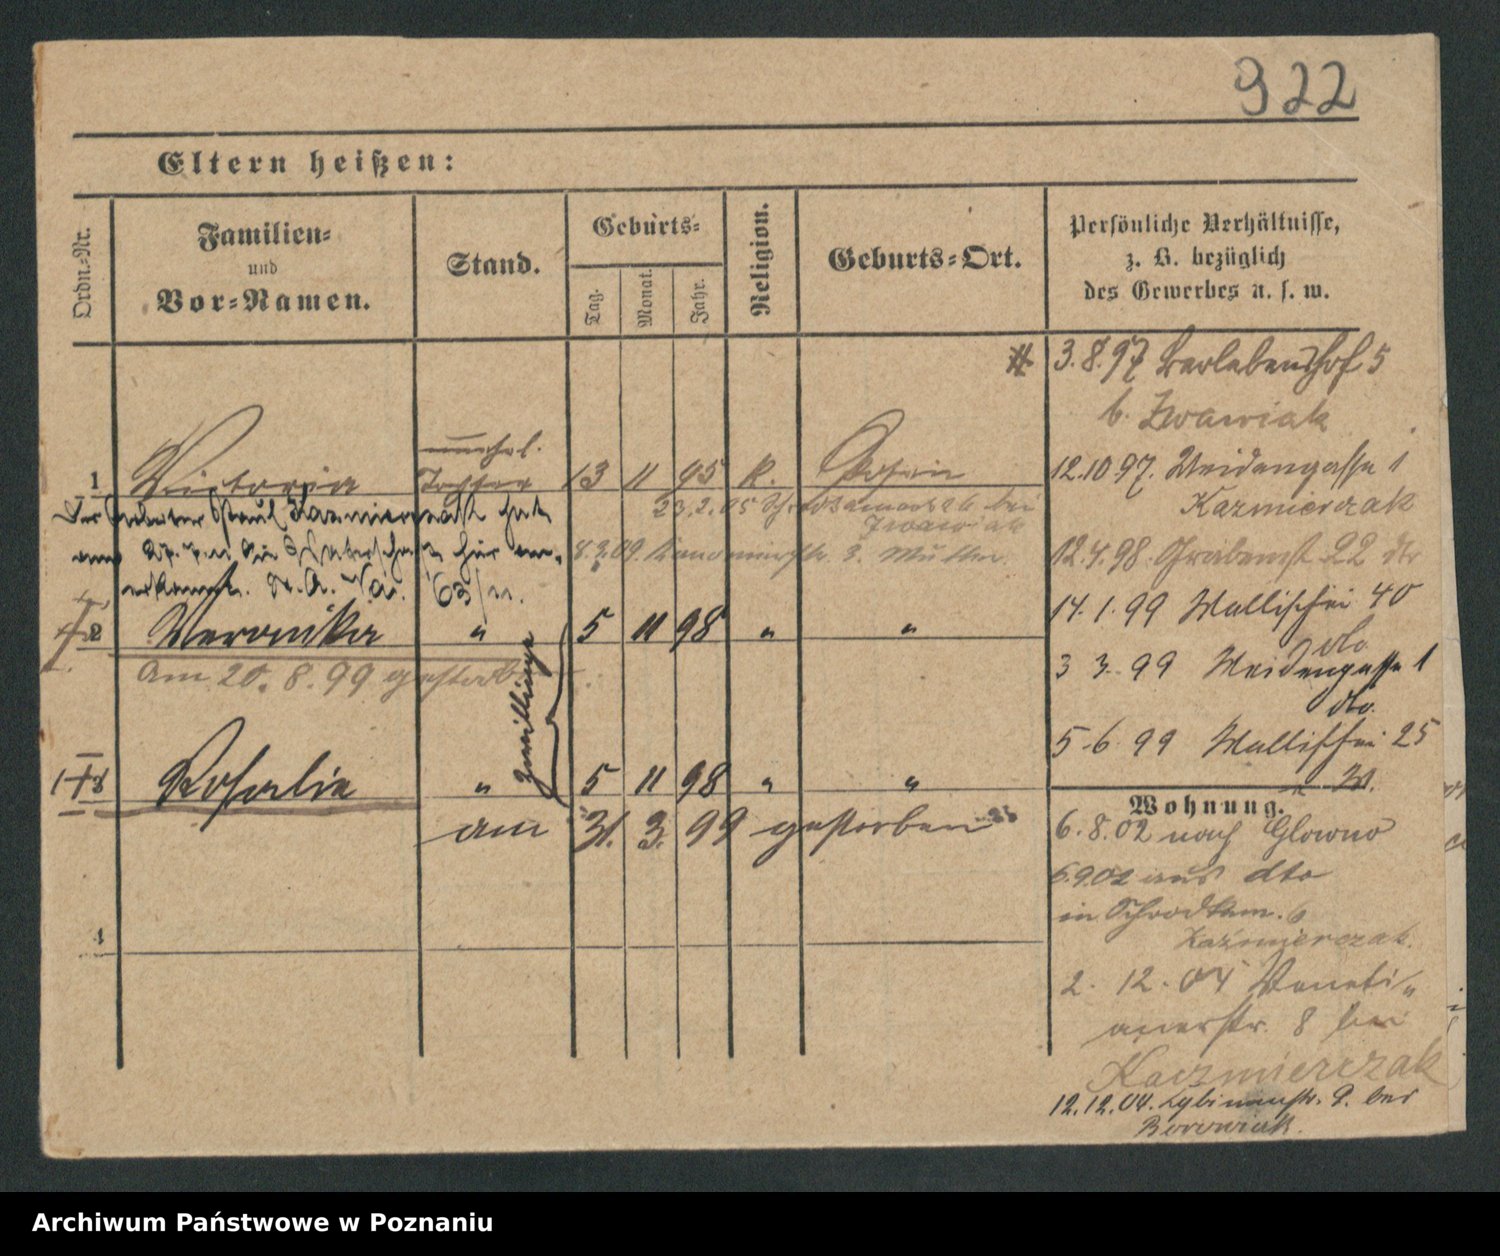 922
Eltern heißen:
Ordn.-Nr.
Familien-
und
Vor-Namen.
Stand.
Geburts-
Tag.
Monat.
Jahr.
Religion.
Geburts-Ort.
Persönliche Verhältnisse,
z. B. bezüglich
des Gewerbes u. s. w.
3.8.97 Berlebenshof 5
b. Zwawiak
unehel.
1 Victoria Tochter 13 11 95 k. Posen
12.10.97. Weidengasse 1
Kazmierczak
Der Arbeiter Paul Kazmierczak hat
23.2.05 bei
Zwawiak
am 27. die Vaterschaft hier an-
8.3.09. 3. Mutter.
erkannt. 63/11.
12.4.98. Grabenst 22 dto
14.1.99 Wallischei 40
dto
2 Veronika " 5 11 98 " "
3 3. 99 Weidengasse 1
dto.
Am 20. 8. 99 gestorben
Zwillinge
5.6.99 Wallischei 25
3 Rosalie " 5 11 98 " "
am 31. 3. 99 gestorben
Wohnung.
6.8.02 nach Glowno
6.9.02 aus dto
in Schrodkam. 6
Kazmierczak.
4
2. 12. 04 Veneti-
anerstr. 8 bei
Kazmierczak
12.12.04. 9. bei
Borowiak.
Archiwum Państwowe w Poznaniu